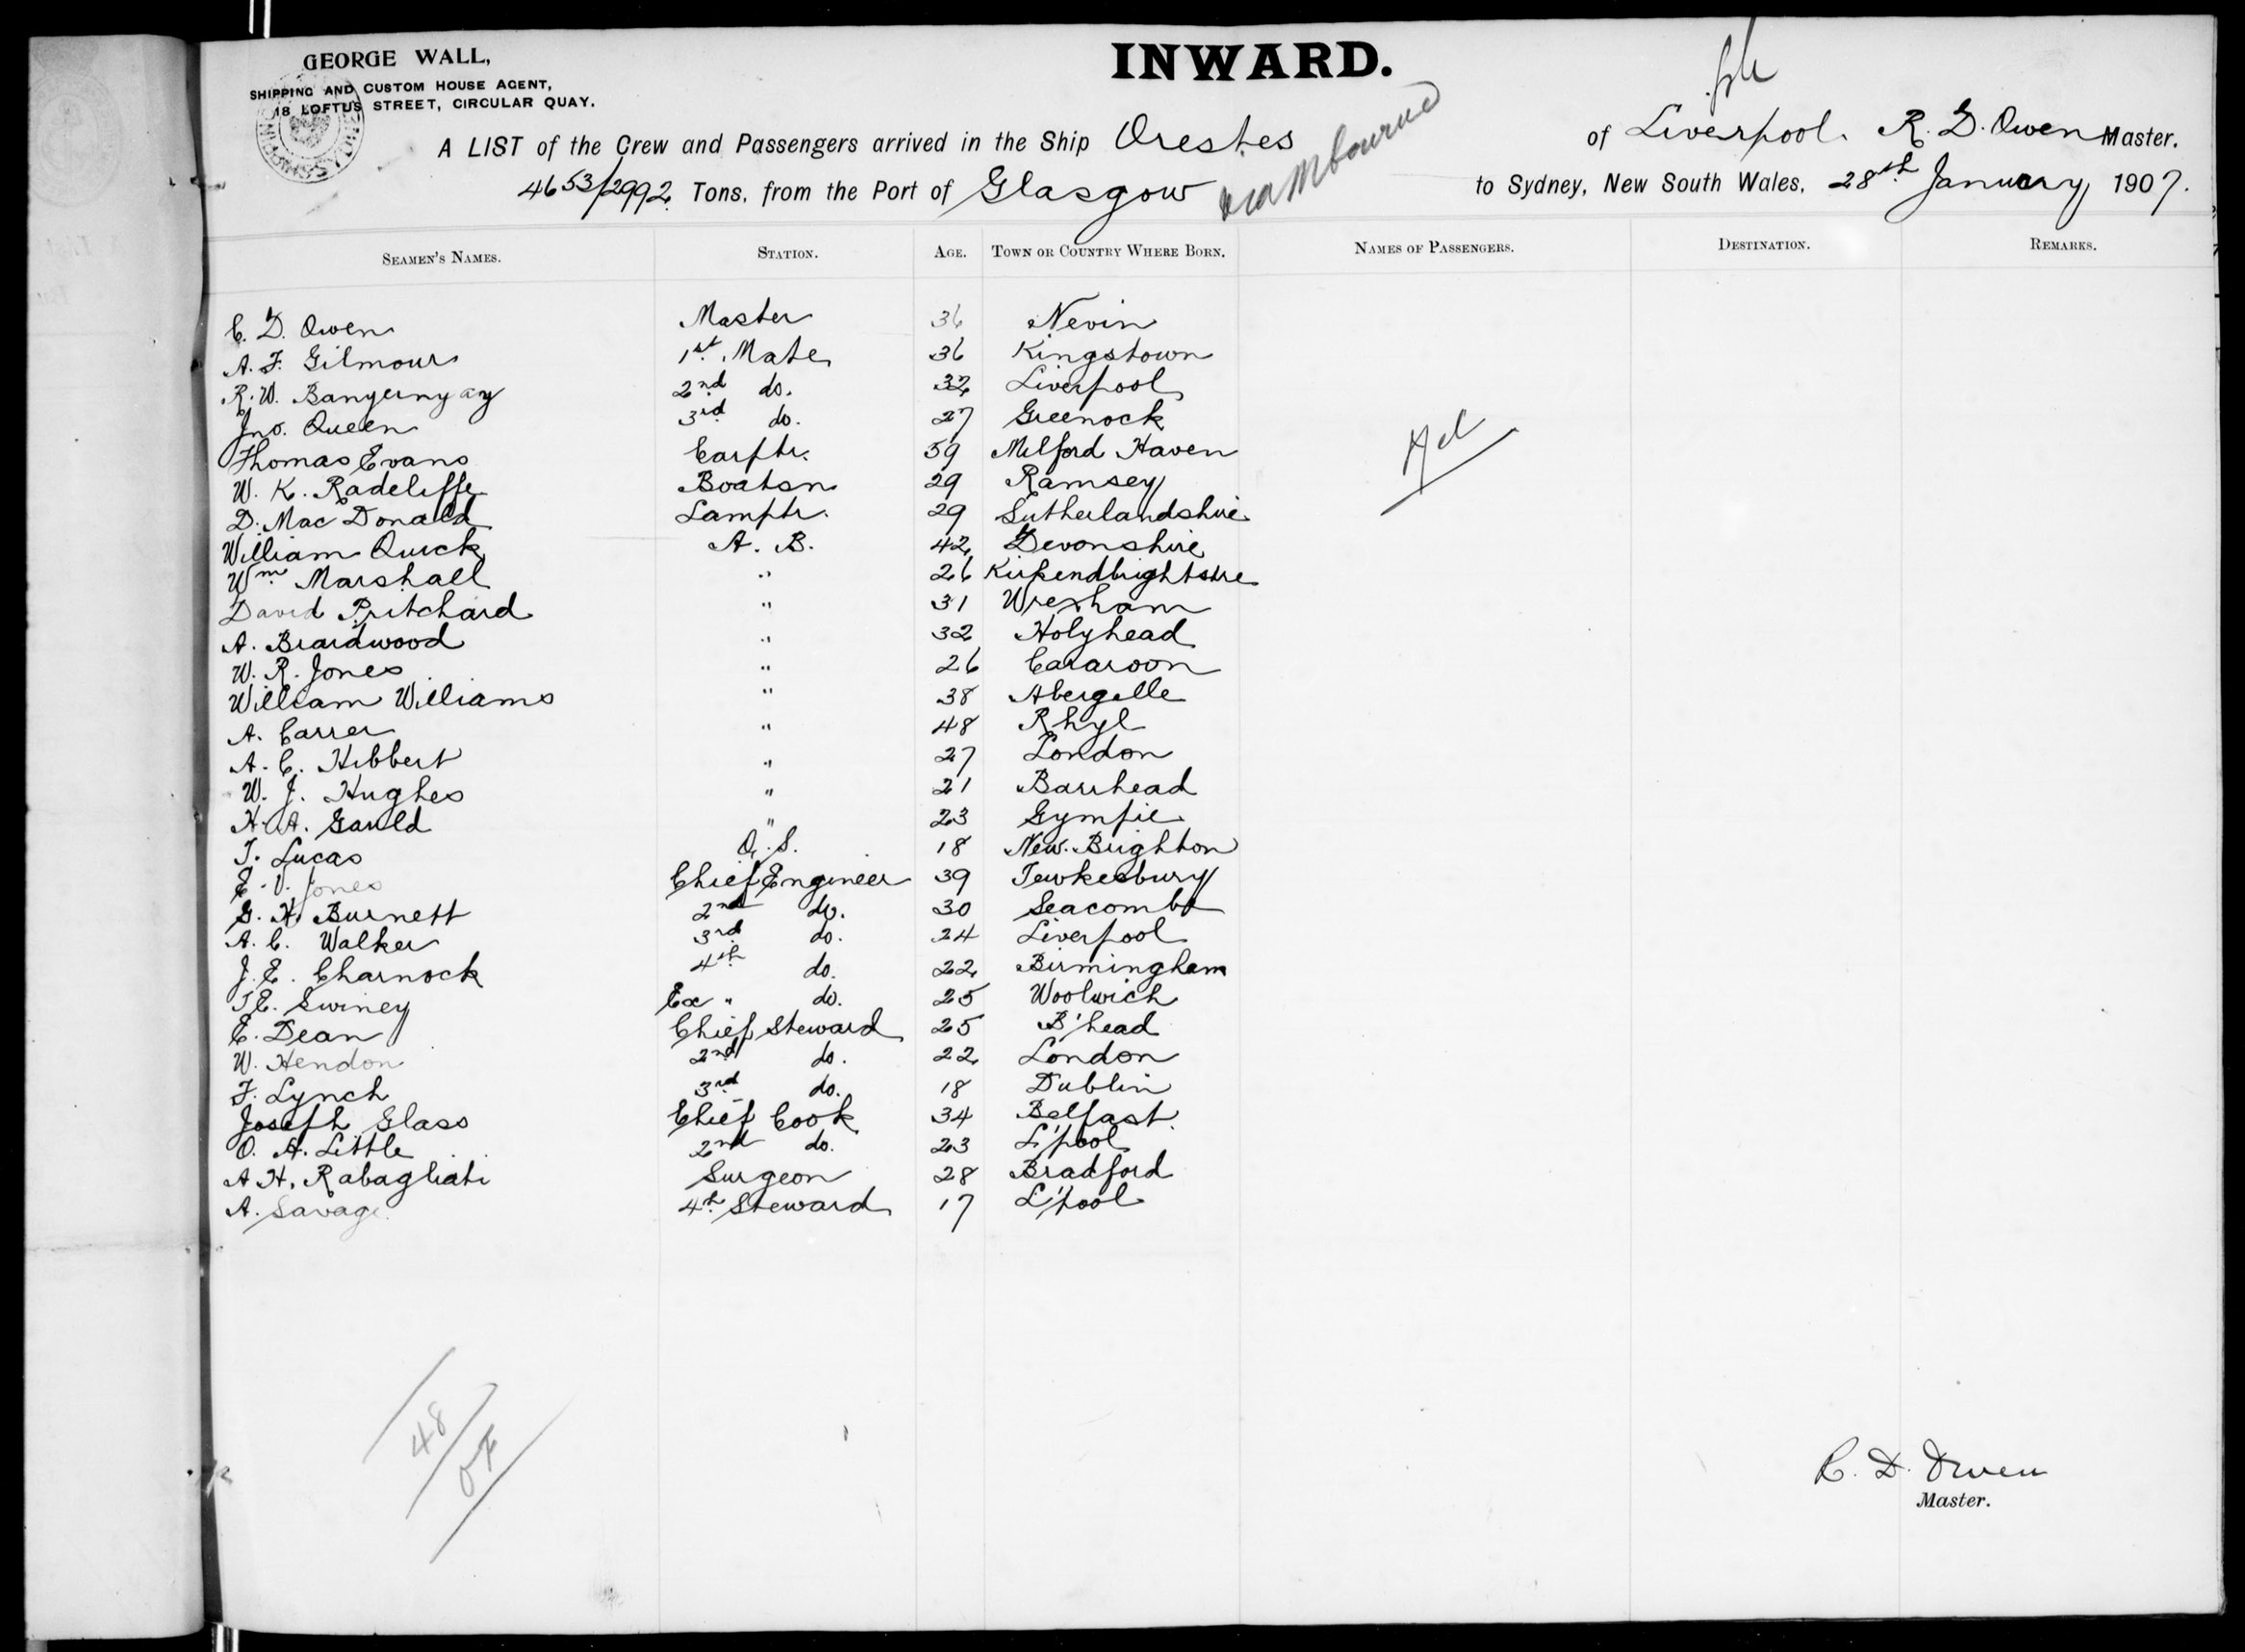 GEORGE WALL,
SHIPPING AND CUSTOM HOUSE AGENT,
18 LOFTUS STREET, CIRCULAR QUAY.
INWARD.
A LIST of the Crew and Passengers arrived in the Ship Orestes of Liverpool. R. D. Owen Master.
4653/2992 Tons, from the Port of Glasgow via Mbourne to Sydney, New South Wales, 28th January 1907.
SEAMEN'S NAMES. STATION. AGE. TOWN OR COUNTRY WHERE BORN. NAMES OF PASSENGERS. DESTINATION. REMARKS.
C. D. Owen Master 36 Nevin
A. F. Gilmour 1st Mate 36 Kingstown
R. W. 2nd do. 32 Liverpool
Jno. Queen 3rd do. 27 Greenock
Thomas Evans Carptr. 59 Milford Haven
W. K. Radcliffe Boatsn 29 Ramsey
D. Mac Donald Lamptr. 29 Sutherlandshire
William Quick A. B. 42 Devonshire
Wm Marshall " 26 Kirkendbrightshre
David Pritchard " 31 Wrexham
A. Braidwood " 32 Holyhead
W. R. Jones " 26 Cararvon
William Williams " 38 Abergelle
A. Carrer " 48 Rhyl
A. C. Hibbert " 27 London
W. J. Hughes " 21 Barrhead
H. A. Gauld " 23 Gympie
T. Lucas O. S. 18 New. Brighton
E. V. Jones Chief Engineer 39 Tewkesbury
G. H. Burnett 2nd do. 30 Seacombe
A. C. Walker 3rd do. 24 Liverpool
J. E. Charnock 4th do. 22 Birmingham
T E. Swiney Ex " do. 25 Woolwich
E. Dean Chief Steward 25 B'head
W. Hendon 2nd do. 22 London
F. Lynch 3rd do. 18 Dublin
Joseph Glass Chief Cook 34 Belfast.
O. A. Little 2nd do. 23 L'pool
A H. Rabagliati Surgeon 28 Bradford
A. Savage 4th Steward 17 L'pool
48
R. D. Owen
Master.